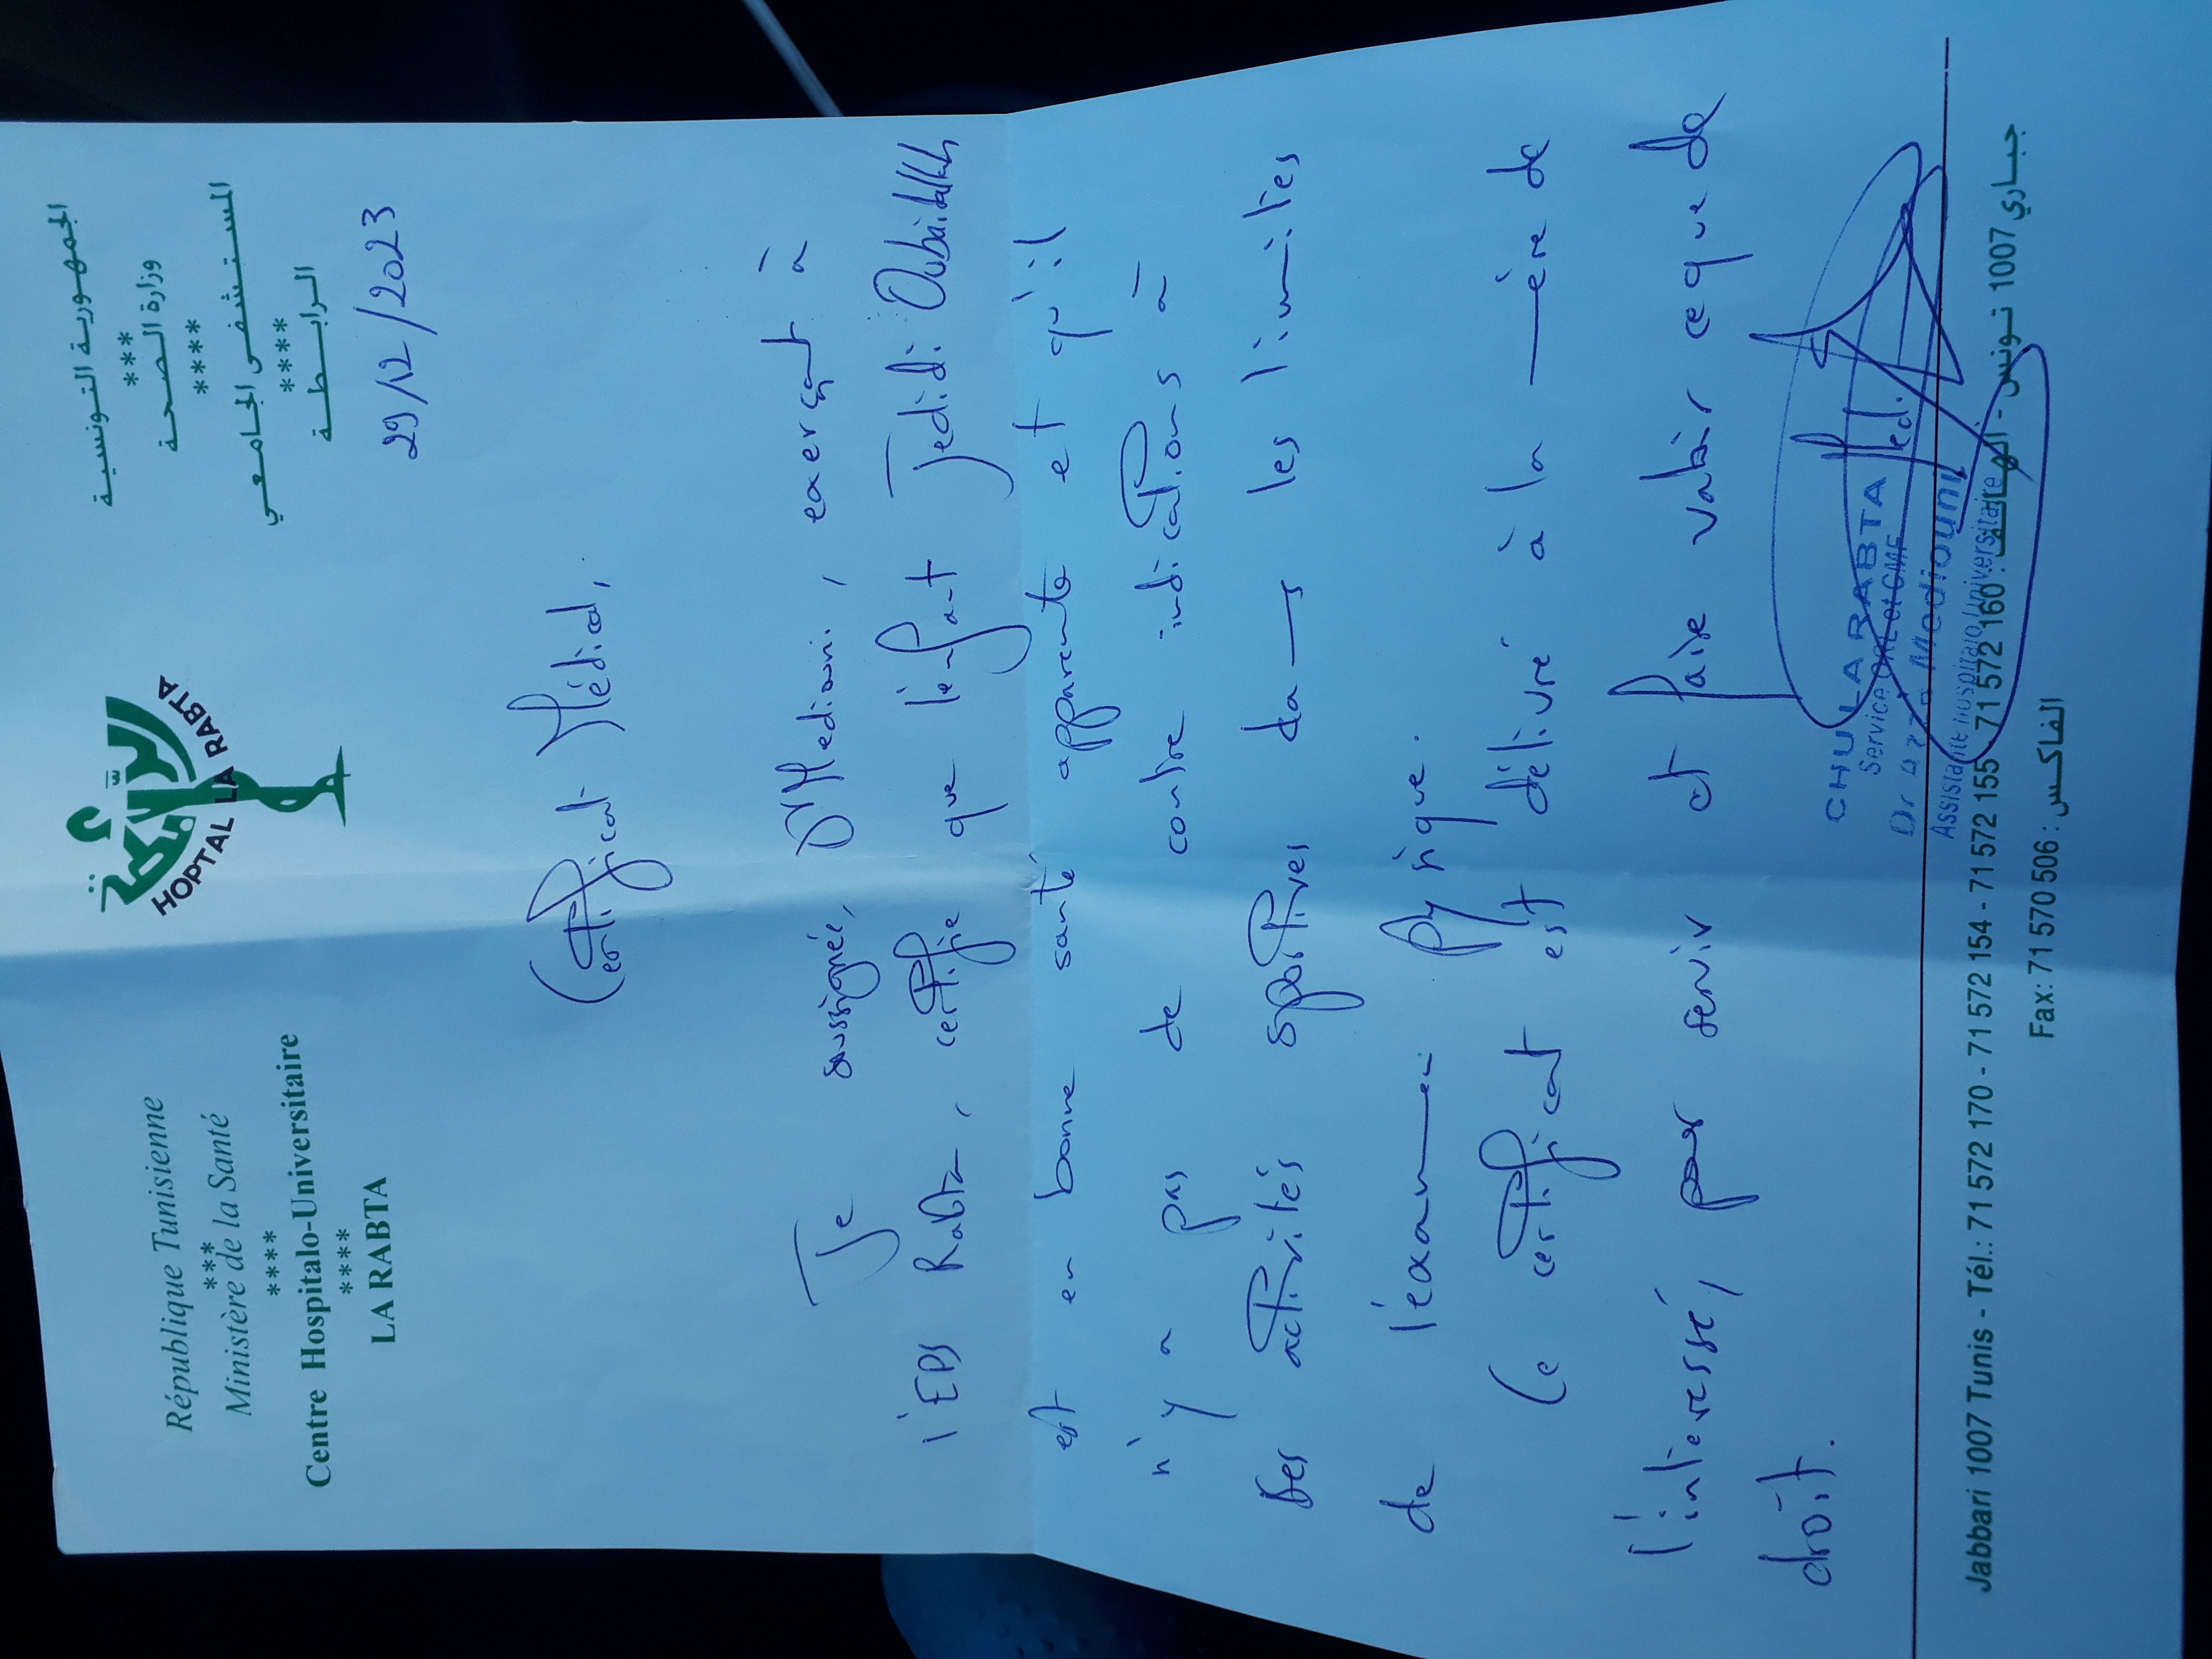 République Tunisienne
***
Ministère de la Santé
****
Centre Hospitalo-Universitaire
****
LA RABTA
الرّابطة
HOPTAL LA RABTA
الجمهورية التونسية
***
وزارة الصحة
****
المستشفى الجامعي
****
الرابطة
29/12/2023
Certificat Médical,
Je soussignée, Dr Mediouni, exerçant à
l'EPS Rabta, certifie que l'enfant Jedidi Oubaidallah
est en bonne santé apparente et qu'il
n'y a pas de contre indications à
ses activités sportives dans les limites
de l'examen pysique.
Ce certificat est délivré à la mère de
l'interessé, pour servir et faire valoir ce que de
droit.
CHU LA RABTA
Service ORL et CMF
Dr Mediouni
Assistante hospitalo Universitaire
Jabbari 1007 Tunis - Tél.: 71 572 170 - 71 572 154 - 71 572 155 - 71 572 160 : الهاتف - جباري 1007 تونس
Fax: 71 570 506 : الفاكس